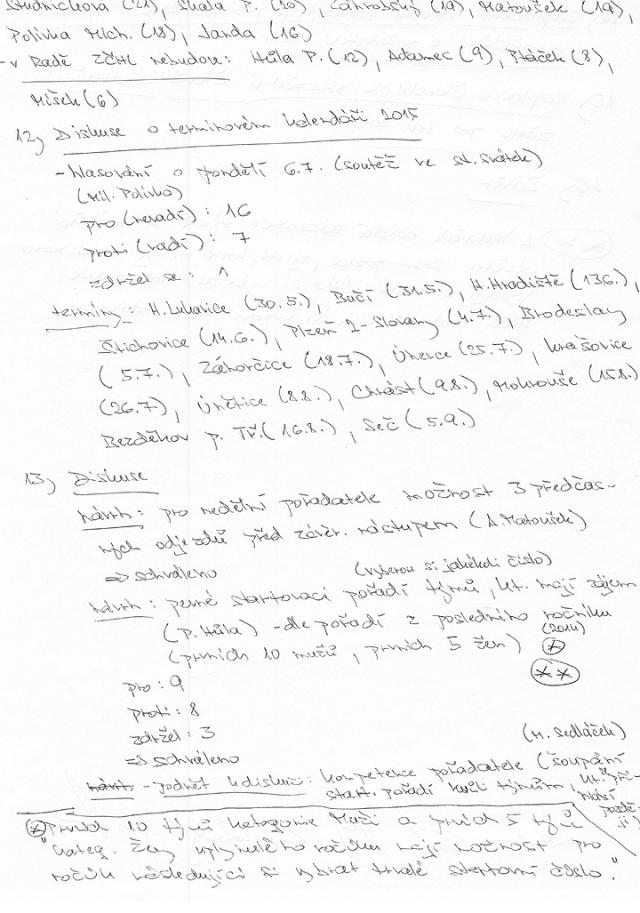 Studničková (21), Skala P. (20), Záhrobský (19), Matoušek (19),
Polívka Mich. (18), Janda (16)
- v Radě ZČHL nebudou: Hůla P. (12), Adamec (9), Ptáček (8),
Míšek (6)
12) Diskuse o termínovém kalendáři 2015
- hlasování o pondělí 6.7. (soutěž ve st. svátek)
(Mil. Polívka)
pro (nevadí): 16
proti (vadí): 7
zdržel se: 1
termíny: H. Lukavice (30.5.), Bučí (31.5.), H. Hradiště (13.6.),
Štichovice (14.6.), Plzeň 2-Slovany (4.7.), Brodeslavy
(5.7.), Záhorčice (18.7.), Únerce (25.7.), Krašovice
(26.7), Únětice (8.8.), Chrást (9.8.), Mokrouše (15.8.)
Bezděkov p. Tř. (16.8.), Seč (5.9.)
13) Diskuse
návrh: pro nedělní pořadatele možnost 3 předčas-
ných odjezdů před závěr. nástupem (A. Matoušek)
=> schváleno (vyberou si jakékoli číslo)
návrh: pevné startovací pořadí týmů, kt. mají zájem
(P. Hůla) - dle pořadí z posledního ročníku
(2014)
(prvních 10 mužů, prvních 5 žen) *
**
pro: 9
proti: 8
zdržel: 3
=> schváleno (M. Sedláček)
návrh - podnět k diskusi: kompetence pořadatele (šoupání
start. pořadí kvůli týmům, kt. se při-
hlásí
pozdě-
ji)
* "Prvních 10 týmů kategorie Muži a prvních 5 týmů
kateg. Ženy uplynulého ročníku mají možnost pro
ročník následující si vybrat trvalé startovní číslo."